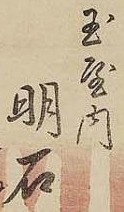 玉屋内
明石